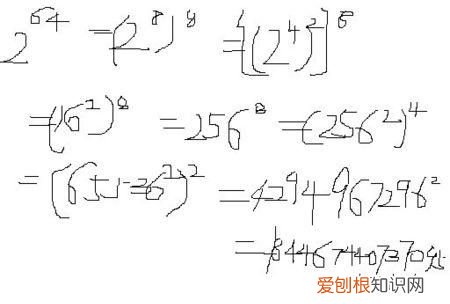 2^64 = (2^8)^8 = [(2^4)^2]^8
= (16^2)^8 = 256^8 = (256^2)^4
= (65536^2)^2 = 4294967296^2
爱刨根知识网